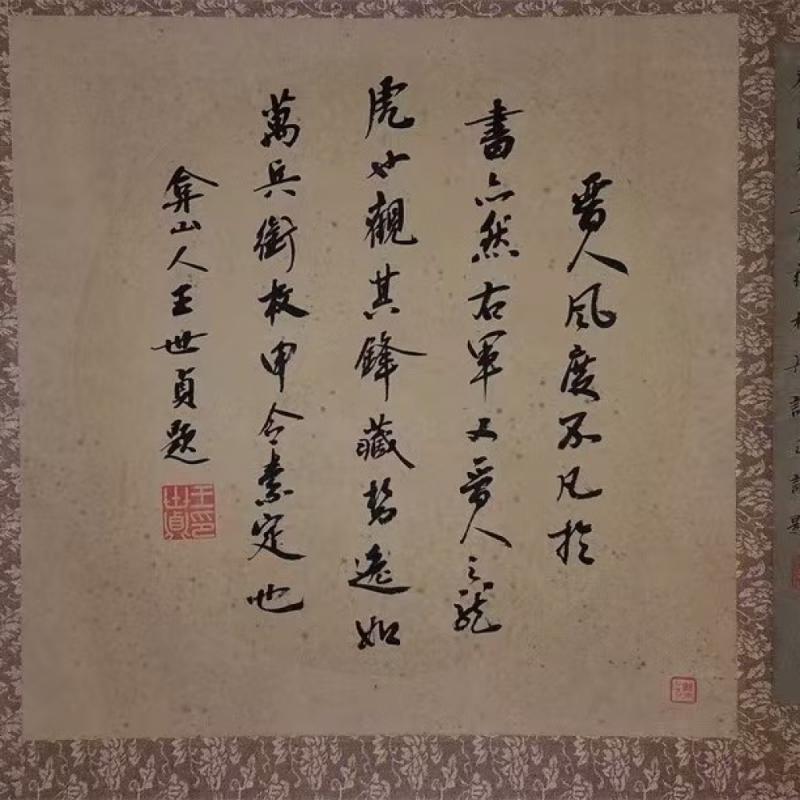 晋人風度不凡於
書亦然右軍又晋人之龍
虎也觀其鋒藏勢逸如
萬兵銜枚申令素定也
弇山人王世貞題
王印世貞